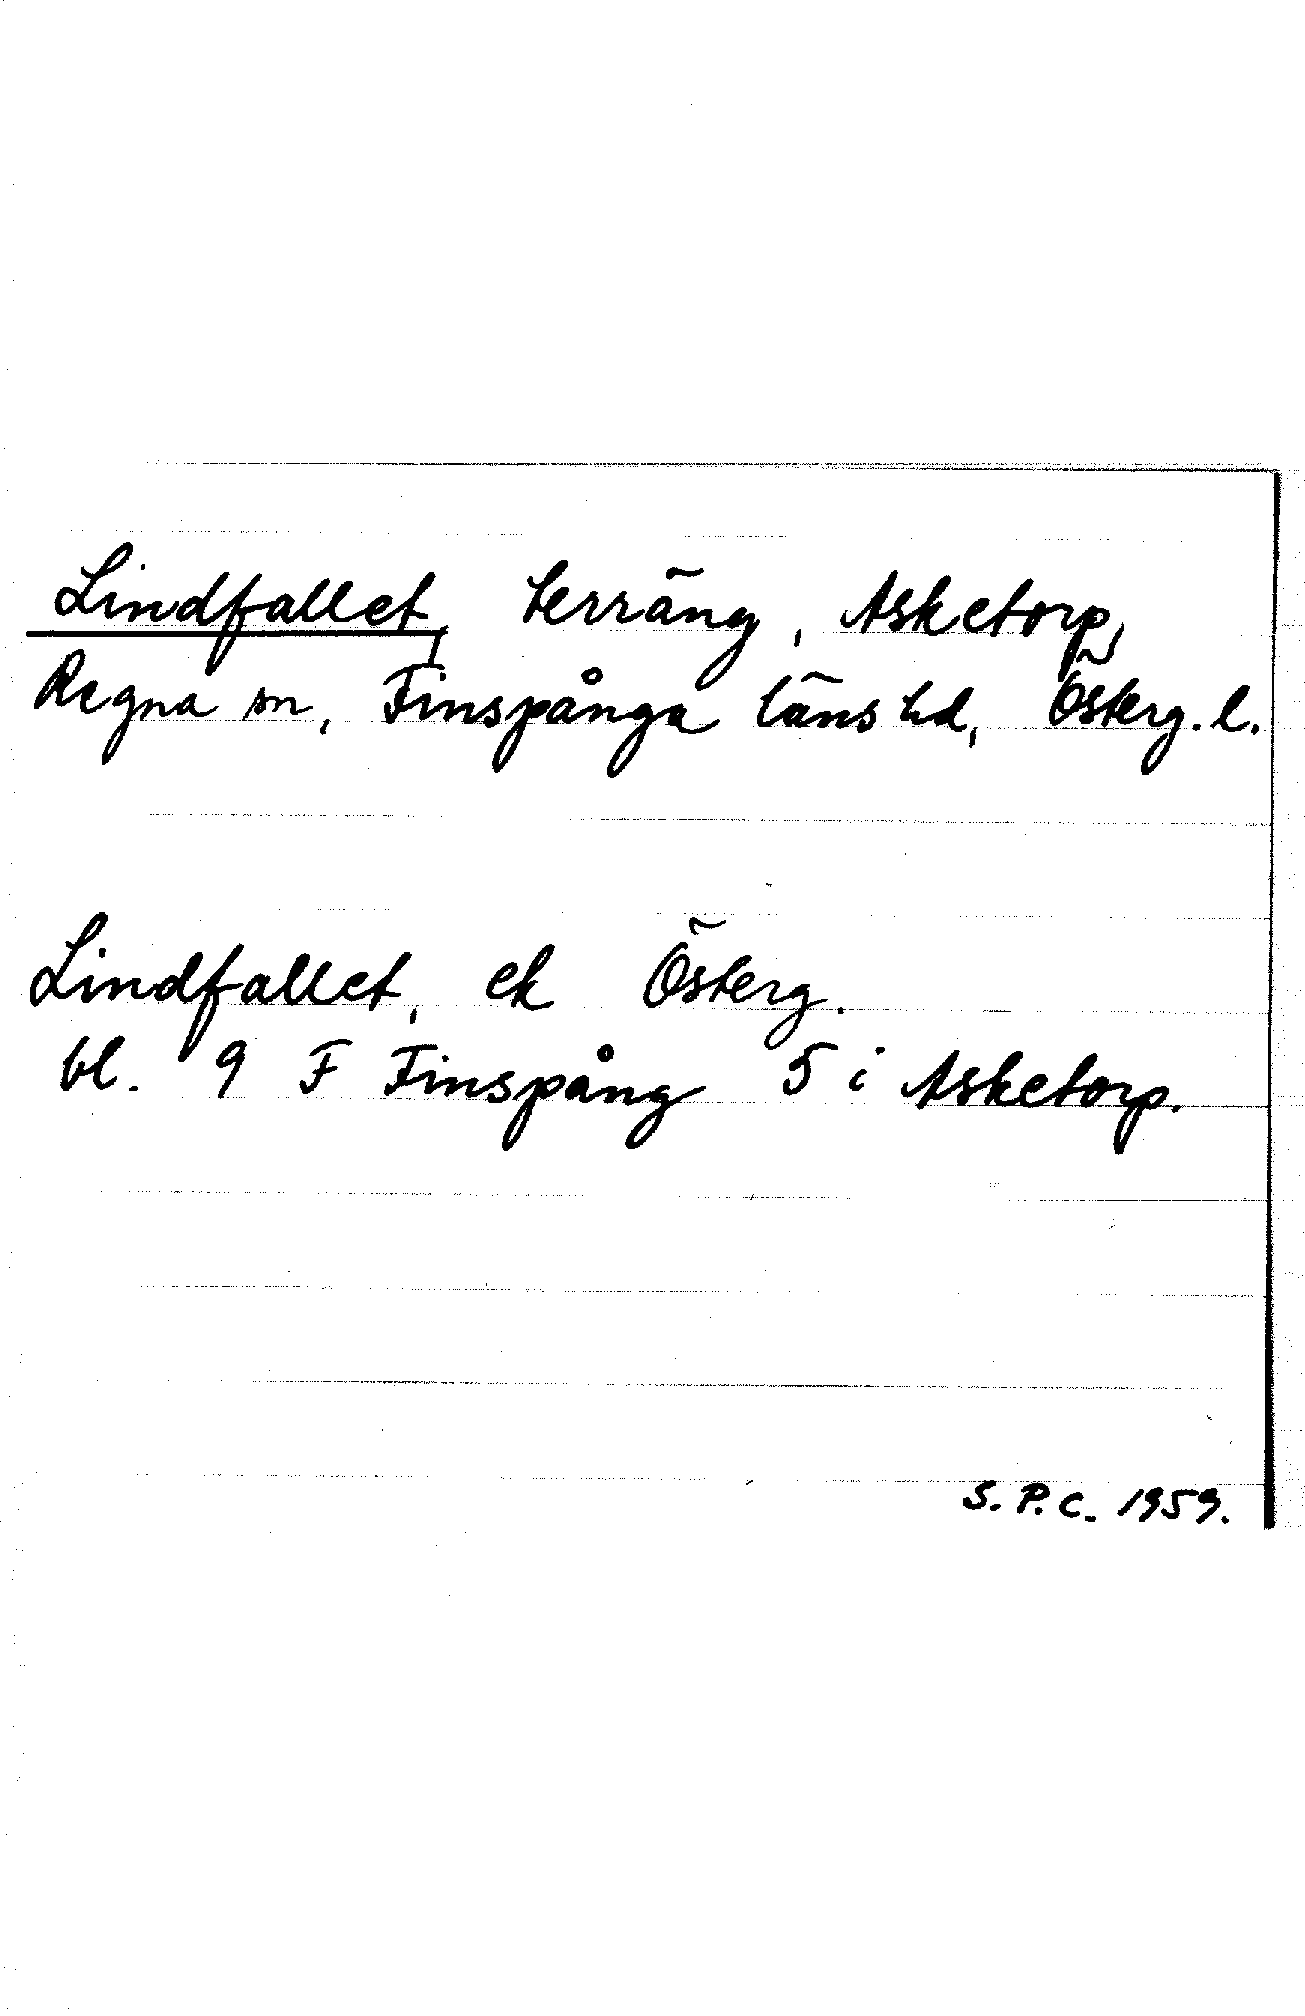 Lindfallet, terräng, Asketorp,
Regna sn, Finspånga läns hd, Österg. l.
Lindfallet, ek Österg.
bl. 9 F Finspång 5 i Asketorp.
S. P. C. 1959.